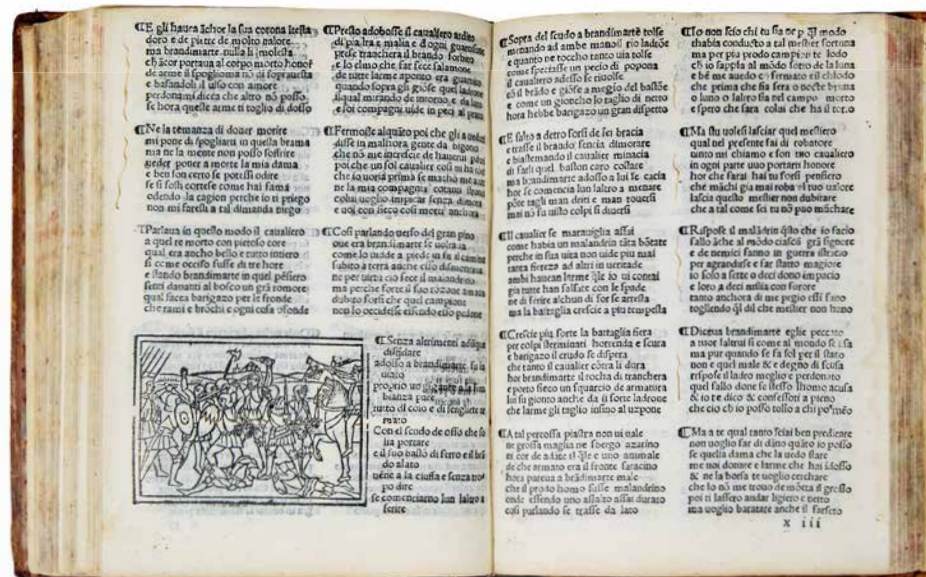 ¶E gli hauea ãchor la sua corona ĩtesta
doro e de pietre de molto ualore
ma brandimarte nulla li molesta
ch ãcor portaua al corpo morto honor
de arme il spoglio ma nõ di sopraueſta
e basandoli il uiso con amore
perdonami dicea che altro nõ posso
se hora queste arme ti toglio di dosso
¶Ne la temanza di douer morire
mi pone di spogliarti in questa brama
ma ne la mente non posso soffrire
ueder poner a morte la mia dama
e ben son certo se potessi odire
se si fosti cortese come hai fama
odendo la cagion perche io ti priego
non mi faresti a tal dimanda niego
¶Parlaua in questo modo il caualiero
a quel re morto con pietoso core
qual era anchor bello e tutto intiero
si come occiso fusse di tre hore
e stando brandimarte in quel pẽsiero
senti dauanti al bosco un grã romore
qual facea barigazo per le fronde
che rami e brochi e ogni cosa asconde
¶Presto adobosse il caualiero ardito
di piastra e malia e d ogni guarnisone
prese tranchera il brando forbito
e lo elmo che far fece salamone
de tutte larme aponto era guarnito
quando sopra gli giõse quel ladrone
il qual mirando de intorno e da lato
e
¶Fermosse alquãto poi che gli a ueduti
disse in malhora gente da bigonzo
che nõ me incresce de hauerui
poi che un sol caualier cosi mi ha
che io uoria prima se macho me
ne la mia compagnia cotanti
colui uoglio impicar senza dimora
e uoi con seco cosi morti anchora
¶Cosi parlando uerso del gran pino
oue era brandimarte se uoltaua
come lo uidde a piede in su il camino
subito a terra anche esso dismontaua
ne per uirtu cio fece il malandrino
ma perche forte il suo rozone amaua
dubito forsi che quel campione
non lo occidesse essendo esso pedone
¶Senza altrimenti adunque
disfidare
adosso a brandimarte fu in
uiato
proprio un gigante a la sem
bianza pare
tutto di coio e di
mato
Con el scudo de osso che so
lia portare
e il suo bastõ di ferro e il brã
do a lato
uẽne a la ciuffa e senza tro
po dire
se comenciarno lun laltro a
ferire
¶Sopra del scudo a brandimarte tolse
menando ad ambe mano il rio ladrõe
e quanto ne toccho tanto uia tolse
come speciasse un pecio di popona
il caualiero adesso se riuolse
cõ il brãdo e giõse a megio del bastõe
e come un gioncho lo taglio di netto
hora hebbe barigazo un gran dispetto
¶E salto a detro forsi de sei bracia
e trasse il brando sencia dimorare
e biastemando il caualier minacia
di farli quel baston caro costare
ma brandimarte adosso a lui se cacia
hor se comencia lun laltro a menare
põte tagli man driti e man rouersi
mai nõ fu uisto colpi si diuersi
¶Il caualier se marauiglia assai
come habia un malandrin tãta bõtate
perche in sua uita non uide piu mai
tanta fierezza ad altri in ueritade
ambi haueano larme che io ui contai
gia tutte han falsate con le spade
ne di ferire alchun di for se arresta
ma la battaglia crescie a piu tempesta
¶Crescie piu forte la battaglia fiera
per colpi sterminati horrenda e scura
e barigazo il crudo se dispera
che tanto il caualier cõtra li dura
hor brandimarte il tocha di tranchera
e porto seco un squarcio de armatura
lui su gionto ancho da si forte ladrone
che larme gli taglio insino al uzpone
¶A tal percossa piastra non ui uale
ne grossa maglia ne sbergo azarino
el cor de adice il qle e uno animale
de che armato era il fronte saracino
hora pareua a brãdimarte male
che il prodo homo fusse malandrino
onde essendo uno assalto assai durato
cosi parlando se trasse da lato
¶Io non scio chi tu sia ne p ql modo
thabia conducto a tal mestier fortuna
ma per piu prodo campion te lodo
ch io sappia al mõdo sotto de la luna
e bẽ me auedo e fermato e il chiodo
che prima che sia sera o nocte bruna
o luno o laltro sia nel campo morto
e spero che sara colui che ha il torto
¶Ma stu uolesi lasciar quel mestiero
qual nel presente fai di robatore
uinto mi chiamo e son tuo caualiero
in ogni parte uuo portarti honore
hor che farai hai tu forsi pensiero
che mãchi gia mai roba al tuo ualore
lascia questo mestier non dubitare
che a tal come sei tu nõ puo mãchare
¶Rispose il malãdrin qsto che io facio
fallo ãche al mõdo ciascũ grã signore
e de nemici fanno in guerra istracio
per agrandirse e far stato magiore
io solo a sette o deci dono impacio
e loro a deci milia con furore
tanto anchora di me pegio essi fano
togliendo ql dil che mestier non hano
¶Diceua brandimarte eglie peccato
a tuor laltrui si come al mondo se usa
ma pur quando se fa sol per il stato
non e quel male & e degno di scusa
rispose il ladro meglio e perdonato
quel fallo donde se stesso lhomo acusa
& io te dico & confessoti a pieno
che cio ch io posso tollo a chi po mẽo
¶Ma a te qual tanto sciai ben predicare
non uoglio far di dãno quãto io posso
se quella dama che la uedo stare
me uoi donare e larme che hai ĩdosso
& ne la borsa te uoglio cerchare
che io nõ me trouo de mõeta il grosso
poi ti lassero andar ligiero e netto
ma uoglio baratare anche il farseto
x iii